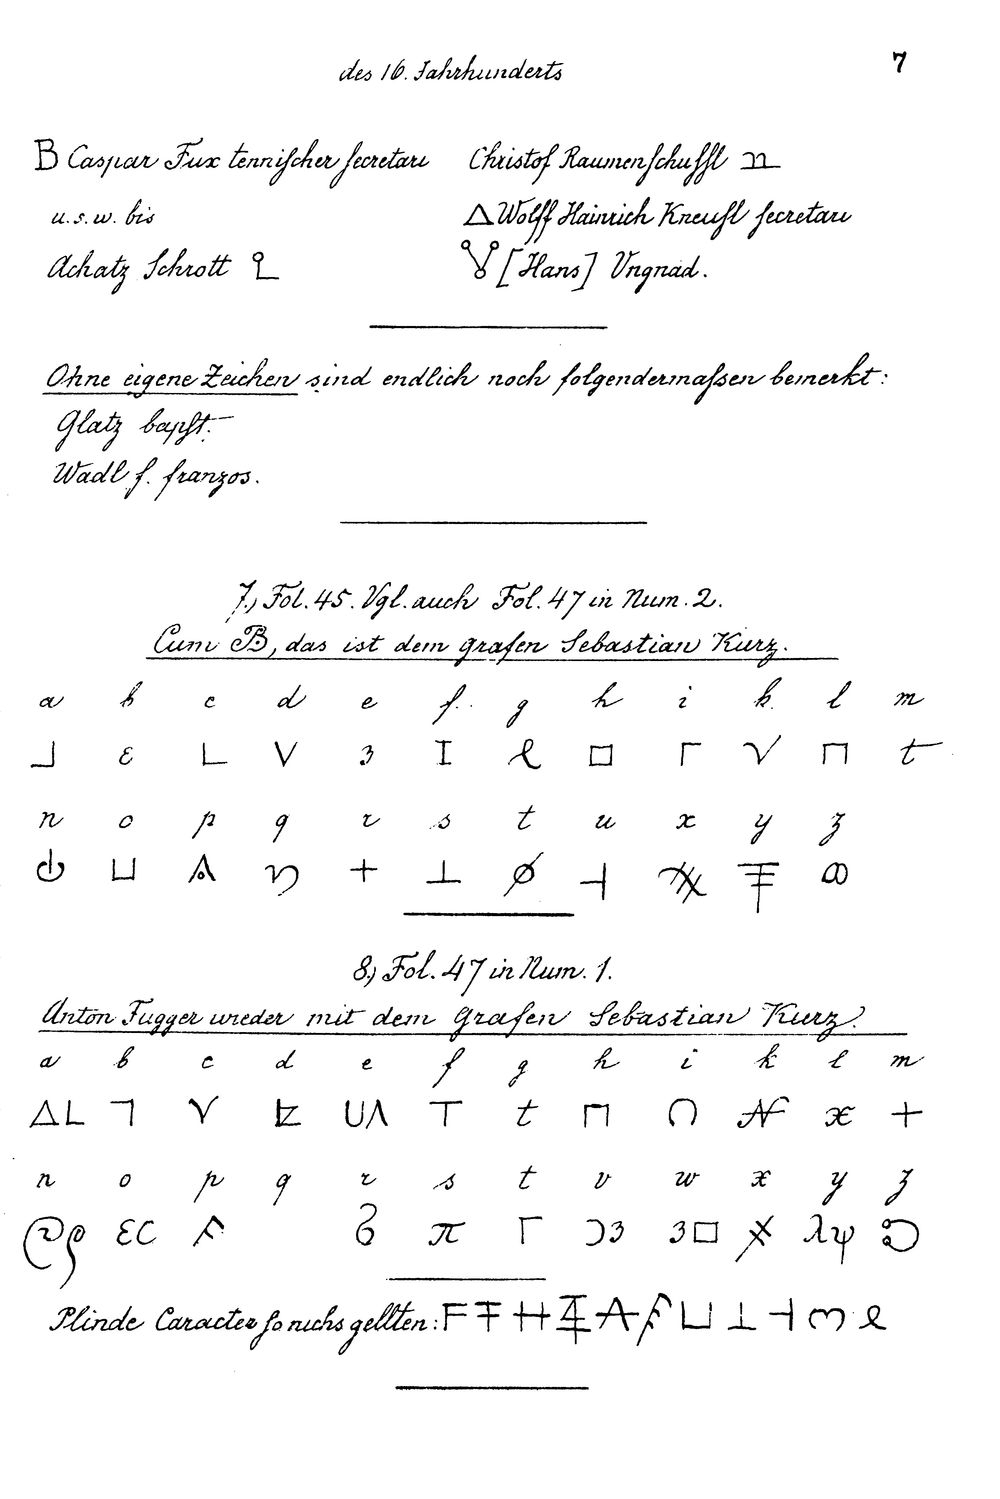 des 16. Jahrhunderts 7
B Caspar Fux tennischer secretari Christof Raumenschussl
u.s.w. bis Δ Wolff Hainrich Kneusl secretari
Achatz Schrott [Hans] Vngnad.
Ohne eigene Zeichen sind endlich noch folgendermassen bemerkt:
Glatz bapst.
Wadl f. franzos.
7.) Fol. 45. Vgl. auch Fol. 47 in Num. 2.
Cum B, das ist dem grafen Sebastian Kurz.
a b c d e f g h i k l m
n o p q r s t u x y z
8.) Fol. 47 in Num. 1.
Anton Fugger wieder mit dem Grafen Sebastian Kurz.
a b c d e f g h i k l m
n o p q r s t v w x y z
Plinde Caracter so nichs gellten: